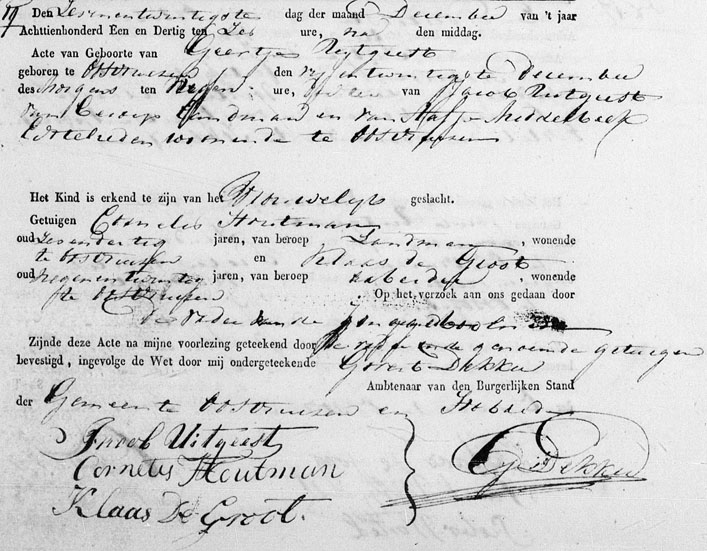 19 Den Zesentwintigste dag der maand December van 't jaar
Achttienhonderd Een en Dertig ten Zes ure, na den middag.
Acte van Geboorte van Geertje Uitgeest
geboren te Oosthuizen den vijfentwintigste December
des morgens ten Negen ure, van Jacob Uitgeest
van beroep Landman en van Aafje Middelbeek
Echtelieden wonende te Oosthuizen
Het Kind is erkend te zijn van het Vrouwelijk geslacht.
Getuigen Cornelis Houtman
oud Zesendertig jaren, van beroep Landman, wonende
te Oosthuizen en Klaas de Groot
oud negenentwintig jaren, van beroep, wonende
te Oosthuizen. Op het verzoek aan ons gedaan door
de Vader van de
Zijnde deze Acte na mijne voorlezing geteekend door de genoemde getuigen
bevestigd, ingevolge de Wet door mij ondergeteekende Govert Dekker
Ambtenaar van den Burgerlijken Stand
der Gemeente Oosthuizen en Hobrede
Jacob Uitgeest
Cornelis Houtman
Klaas De Groot.
Dekker